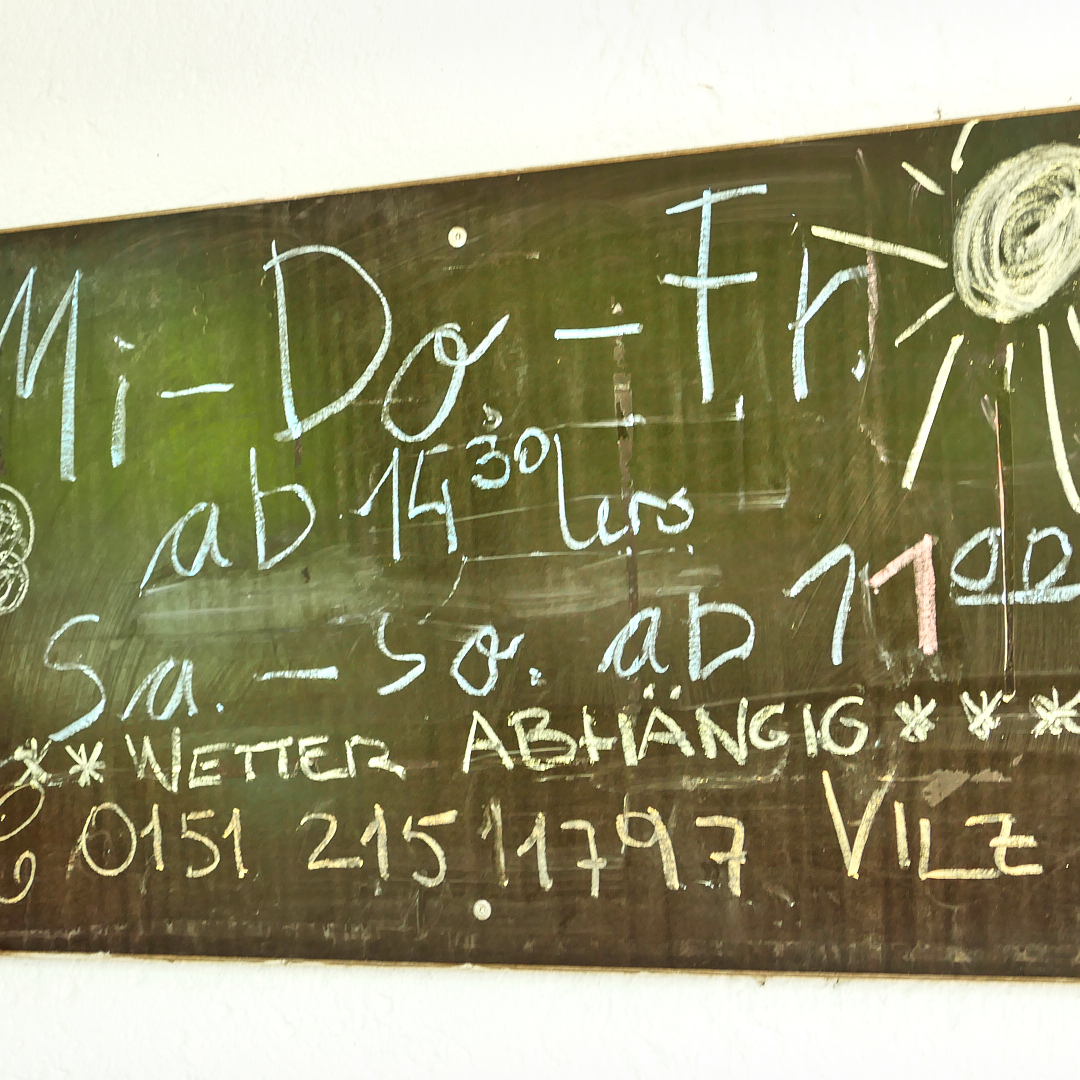 Mi - Do - Fr.
ab 14³⁰ Uhrs
Sa. - So. ab 11⁰⁰
** WETTER ABHÄNGIG ***
0151 215 11797 VILZ